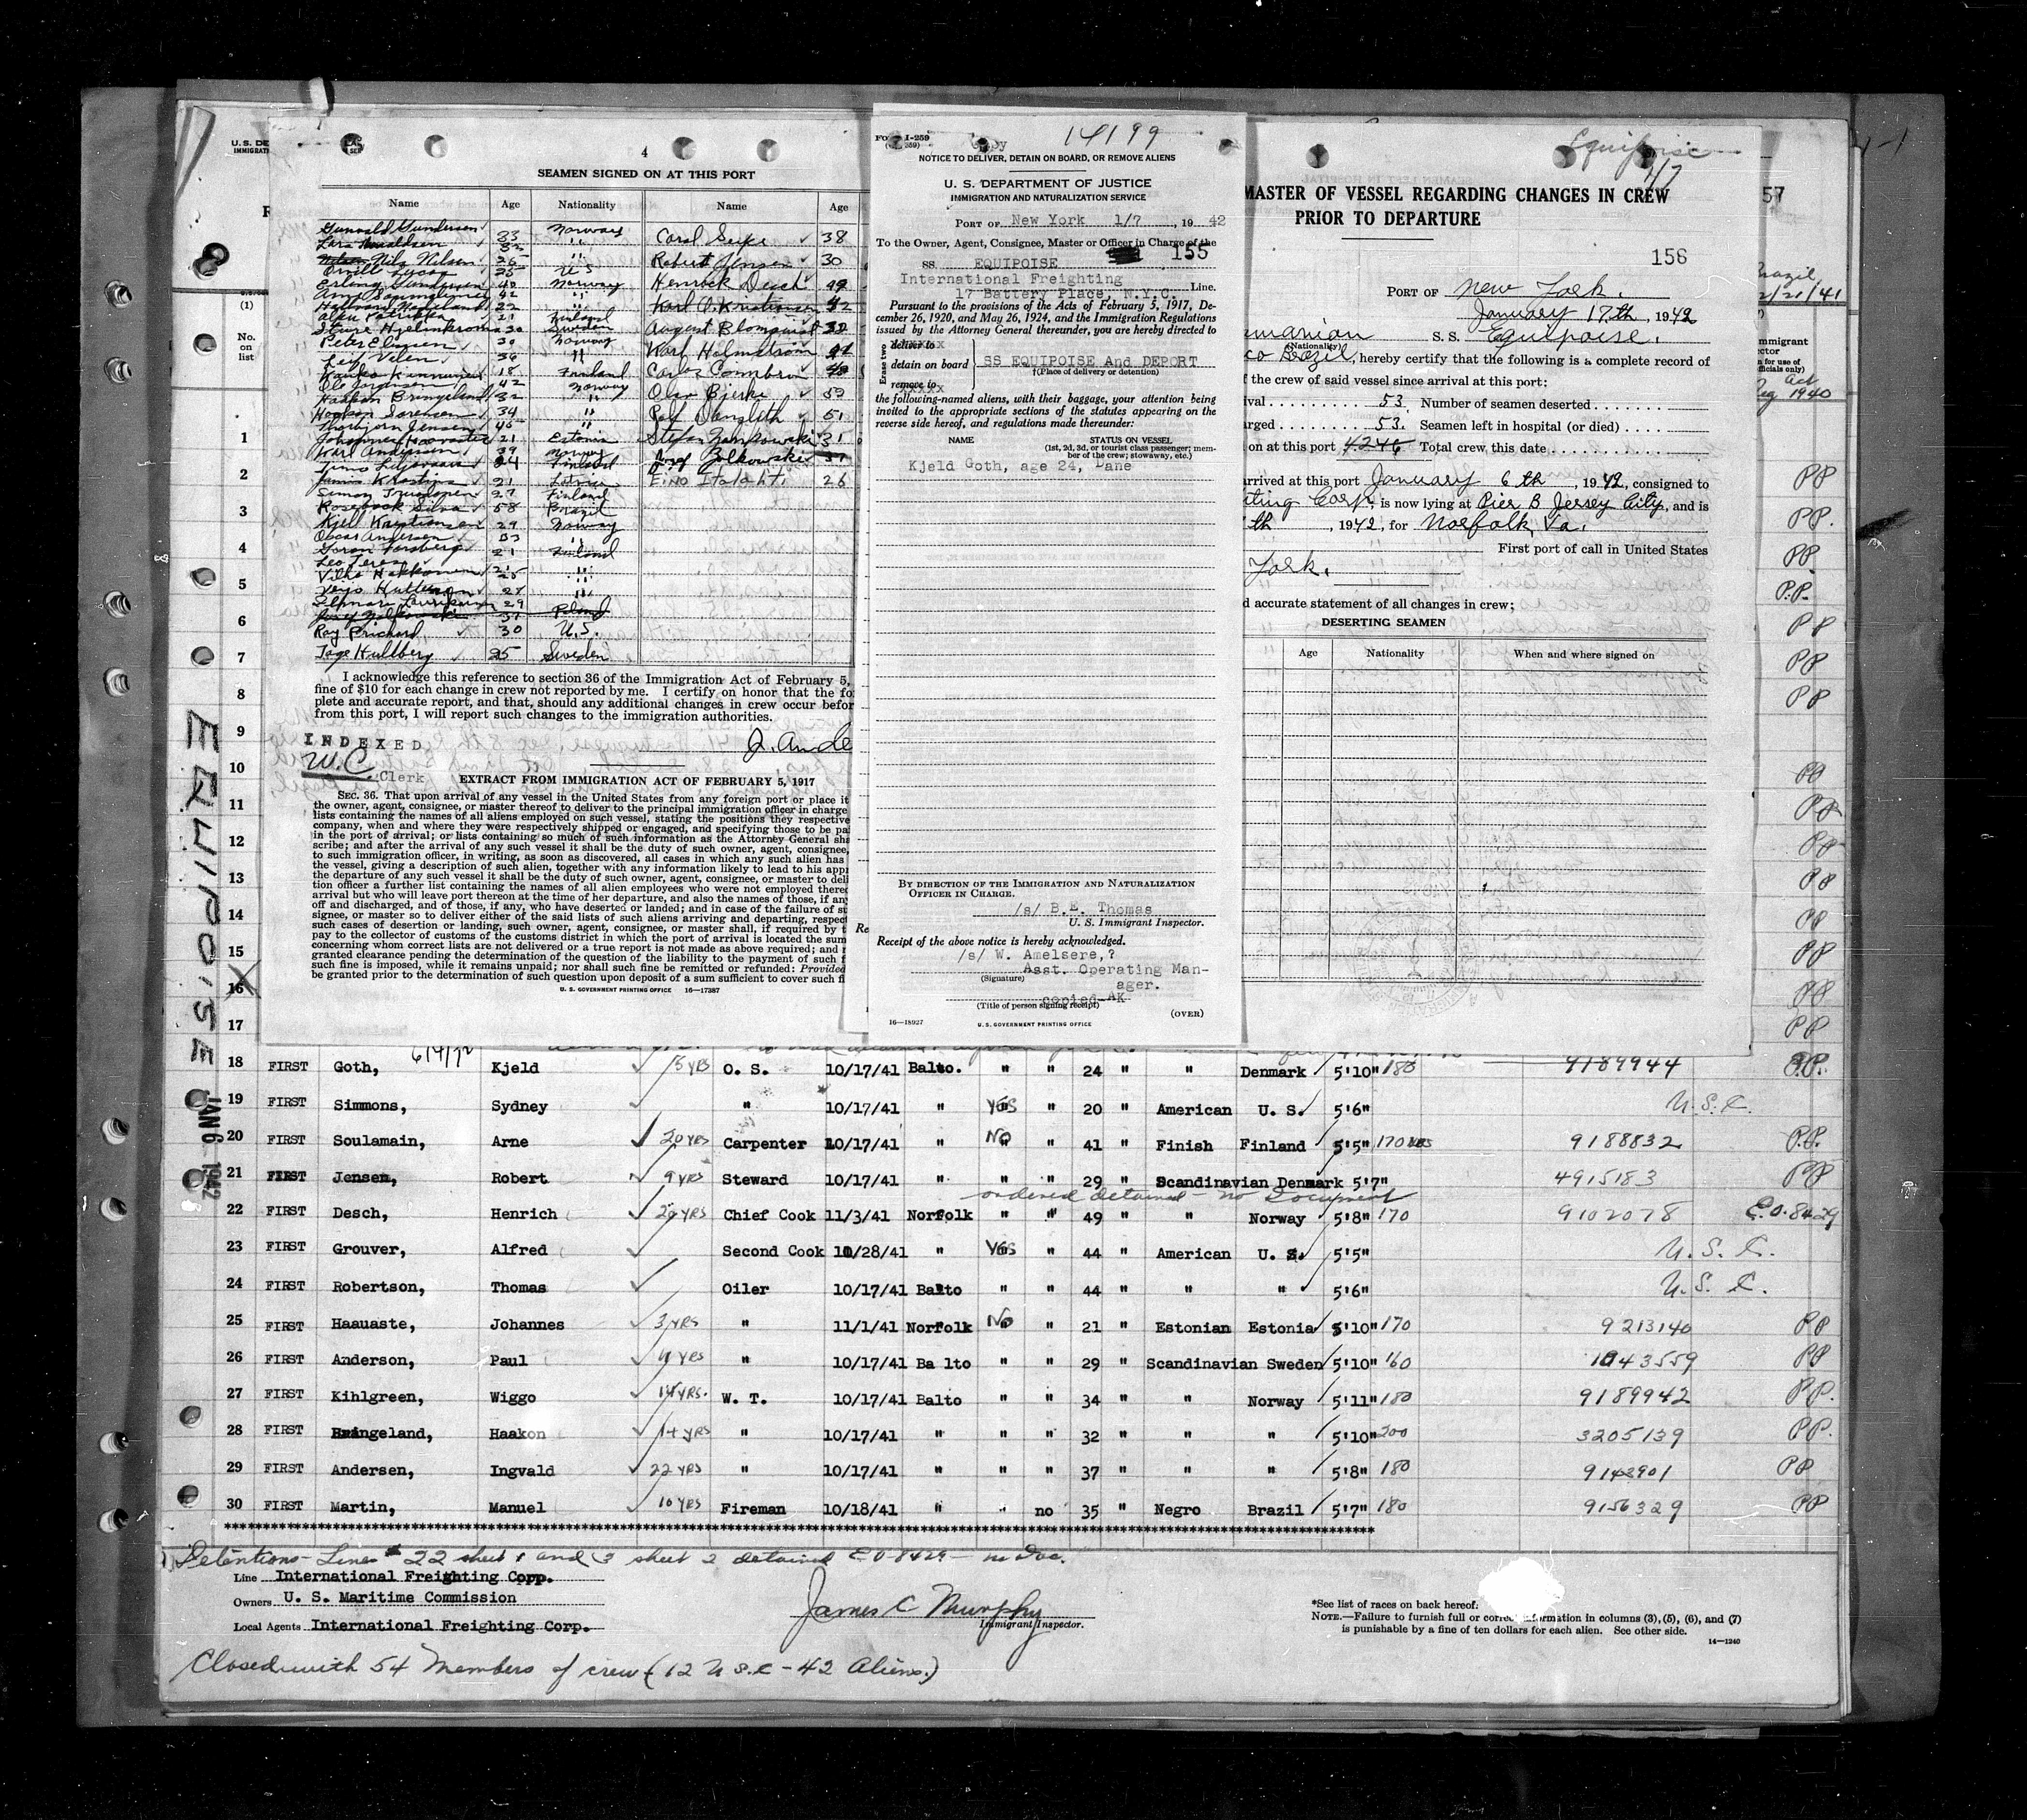 4
SEAMEN SIGNED ON AT THIS PORT
Name Age Nationality Name Age
Gunvald Gundersen 33 Norway Carol Seike 38
Robert Jensen 30
Nils Nilsen 26
U S
Erling Gundersen 40 Norway Henrock Desch 49
42 " Karl O. Kristiansen 42
22
21 Finland August Blomquist 32
Sture Hjelmkrom 30 Sweden
Peter Eliasen 30 Norway Karl Holmstrom
Leif Velen 36 "
18 Finland Carlos
Ole Jorgensen 42 Norway Olav Bjerke 53
Haakon Bringeland 32 "
Haakon Sorensen 34 " 51
Thorbjorn Jensen 46 "
Johannes 21 Estonia Stefan Jankowski 31
Karl Andersen 39 Norway
Finland Josef Zolkowski 37
21 Latvia Eino 26
Simon 27 Finland
Rosebock Silva 58 Brazil
Kjell Kristiansen 29 Norway
Oscar Andersen 33 "
Goran Forsberg 21 Finland
Leo
Vilho Hakkonen 25
29
Josef Zolkowski 37 Poland
Ray Prichard 30 U.S.
Tage Hullberg 25 Sweden
I acknowledge this reference to section 36 of the Immigration Act of February 5,
fine of $10 for each change in crew not reported by me. I certify on honor that the fo
plete and accurate report, and that, should any additional changes in crew occur befor
from this port, I will report such changes to the immigration authorities.
INDEXED
J. Ande
W.C. Clerk
EXTRACT FROM IMMIGRATION ACT OF FEBRUARY 5, 1917
SEC. 36. That upon arrival of any vessel in the United States from any foreign port or place it
the owner, agent, consignee, or master thereof to deliver to the principal immigration officer in charge
lists containing the names of all aliens employed on such vessel, stating the positions they respective
company, when and where they were respectively shipped or engaged, and specifying those to be pa
in the port of arrival; or lists containing so much of such information as the Attorney General sha
scribe; and after the arrival of any such vessel it shall be the duty of such owner, agent, consignee,
to such immigration officer, in writing, as soon as discovered, all cases in which any such alien has
the vessel, giving a description of such alien, together with any information likely to lead to his appr
the departure of any such vessel it shall be the duty of such owner, agent, consignee, or master to deli
tion officer a further list containing the names of all alien employees who were not employed there
arrival but who will leave port thereon at the time of her departure, and also the names of those, if an
off and discharged, and of those, if any, who have deserted or landed; and in case of the failure of su
signee, or master so to deliver either of the said lists of such aliens arriving and departing, respec
such cases of desertion or landing, such owner, agent, consignee, or master shall, if required by t
pay to the collector of customs of the customs district in which the port of arrival is located the sum
concerning whom correct lists are not delivered or a true report is not made as above required; and n
granted clearance pending the determination of the question of the liability to the payment of such f
such fine is imposed, while it remains unpaid; nor shall such fine be remitted or refunded: Provided
be granted prior to the determination of such question upon deposit of a sum sufficient to cover such fi
U.S. GOVERNMENT PRINTING OFFICE 16—17387
I-259
14199
NOTICE TO DELIVER, DETAIN ON BOARD, OR REMOVE ALIENS
U. S. DEPARTMENT OF JUSTICE
IMMIGRATION AND NATURALIZATION SERVICE
PORT OF New York 1/7, 1942
To the Owner, Agent, Consignee, Master or Officer in Charge of the
SS EQUIPOISE 155
International Freighting
17 Battery Place, N.Y.C. Line.
Pursuant to the provisions of the Acts of February 5, 1917, De-
cember 26, 1920, and May 26, 1924, and the Immigration Regulations
issued by the Attorney General thereunder, you are hereby directed to
Erase two
deliver to
detain on board SS EQUIPOISE And DEPORT
†(Place of delivery or detention)
remove to
the following-named aliens, with their baggage, your attention being
invited to the appropriate sections of the statutes appearing on the
reverse side hereof, and regulations made thereunder:
NAME STATUS ON VESSEL
(1st, 2d, 3d, or tourist class passenger; mem-
ber of the crew; stowaway, etc.)
Kjeld Goth, age 24, Dane
BY DIRECTION OF THE IMMIGRATION AND NATURALIZATION
OFFICER IN CHARGE.
/s/ B.E. Thomas
U. S. Immigrant Inspector.
Receipt of the above notice is hereby acknowledged.
/s/ W. Amelsere,?
Asst. Operating Man-
(Signature) ager.
copied-AK
(Title of person signing receipt)
(OVER)
16—18927 U.S. GOVERNMENT PRINTING OFFICE
Equipoise
1/7
MASTER OF VESSEL REGARDING CHANGES IN CREW
PRIOR TO DEPARTURE
156
PORT OF New York.
January 17th, 1942
manian S. S. Equipoise.
(Nationality)
co Brazil, hereby certify that the following is a complete record of
f the crew of said vessel since arrival at this port:
ival 53. Number of seamen deserted
rged 53. Seamen left in hospital (or died)
on at this port 42 46 Total crew this date
rrived at this port January 6th, 1942, consigned to
ting Corp, is now lying at Pier B Jersey City, and is
th, 1942, for Norfolk, Va.
First port of call in United States
York.
d accurate statement of all changes in crew:
DESERTING SEAMEN
Age Nationality When and where signed on
57
Brazil
2/21/41
mmigrant
ctor
n for use of
fficials only)
Act
1940
U.S. DE
IMMIGRAT
(1)
No.
on
list
1
2 PP
3 PP.
4 PP
5 P.P.
6 PP
7 PP
8 PP
9
10 PP
11 PP
12 PP
13 PP
14 PP
15 PP
16 PP
17 PP
EQUIPOISE
JAN 6 1942
18 FIRST Goth, Kjeld 15 YRS O. S. 10/17/41 Balto. " " 24 " " Denmark 5'10" 180 9189944 P.P.
19 FIRST Simmons, Sydney " 10/17/41 " YES " 20 " American U. S. 5'6" U.S.C.
20 FIRST Soulamain, Arne 20 YRS Carpenter 10/17/41 " NO " 41 " Finish Finland 5'5" 170 9188832 P.P.
21 FIRST Jensen, Robert 9 YRS Steward 10/17/41 " " " 29 " Scandinavian Denmark 5'7" 4915183 PP
ordered detained - no Document
22 FIRST Desch, Henrich 29 YRS Chief Cook 11/3/41 Norfolk " " 49 " " Norway 5'8" 170 9102078 E.O. 8429
23 FIRST Grouver, Alfred Second Cook 10/28/41 " YES " 44 " American U. S. 5'5" U.S.C.
24 FIRST Robertson, Thomas Oiler 10/17/41 Balto " " 44 " " " 5'6" U.S.C.
25 FIRST Haauaste, Johannes 3 YRS " 11/1/41 Norfolk NO " 21 " Estonian Estonia 5'10" 170 9213140 PP
26 FIRST Anderson, Paul 4 YRS " 10/17/41 Ba lto " " 29 " Scandinavian Sweden 5'10" 160 1043559 PP
27 FIRST Kihlgreen, Wiggo W. T. 10/17/41 Balto " " 34 " " Norway 5'11" 180 9189942 P.P.
28 FIRST Bringeland, Haakon 14 YRS " 10/17/41 " " " 32 " " " 5'10" 200 3205139 PP.
29 FIRST Andersen, Ingvald 22 YRS " 10/17/41 " " " 37 " " " 5'8" 180 9142901 PP
30 FIRST Martin, Manuel 10 YRS Fireman 10/18/41 " " no 35 " Negro Brazil 5'7" 180 9156329 PP
Detentions - Line # 22 sheet 1 and 3 sheet 2 detained E.O 8429 - no Doc.
Line International Freighting Corp.
Owners U. S. Maritime Commission
Local Agents International Freighting Corp.
James C Murphy
Immigrant Inspector.
*See list of races on back hereof.
NOTE.—Failure to furnish full or correct information in columns (3), (5), (6), and (7)
is punishable by a fine of ten dollars for each alien. See other side.
14—1240
Closed with 54 Members of crew (12 U S.C - 42 Aliens.)